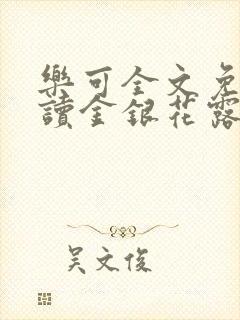 樂可全文免
讀金銀花露
吳文俊